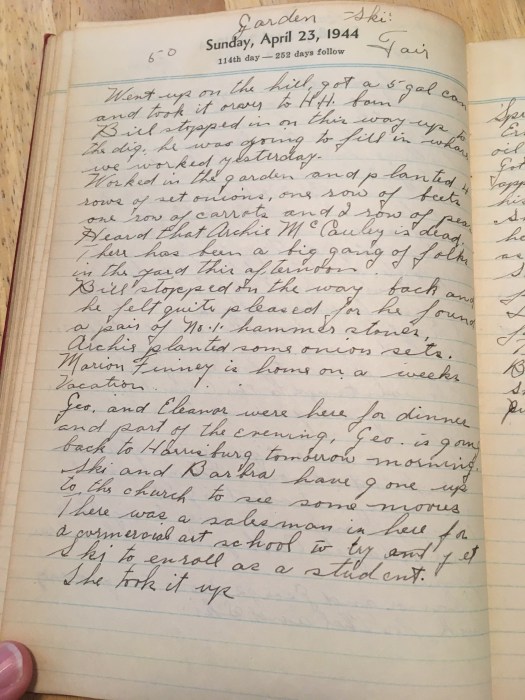 Garden - Ski:
50 Sunday, April 23, 1944 Fair
114th day — 252 days follow
Went up on the hill, got a 5 gal can
and took it over to H.H. barn
Bill stopped in on this way up to
the dig, he was going to fill in where
we worked yesterday.
Worked in the garden and planted 4
rows of set onions, one row of beets
one row of carrots and 2 row of peas
Heard that Archie McCauley is dead,
There has been a big gang of folks
in the yard this afternoon
Bill stopped on the way back and
he felt quite pleased for he found
a pair of No. 1. hammer stones,
Archie planted some onion sets.
Marion Finney is home on a weeks
Vacation.
Geo. and Eleanor were here for dinner
and part of the evening, Geo. is going
back to Harrisburg tomorrow morning.
Ski and Bar'bra have gone up
to the church to see some movies
There was a salesman in here for
a commercial art school to try and get
Ski to enroll as a student.
She took it up